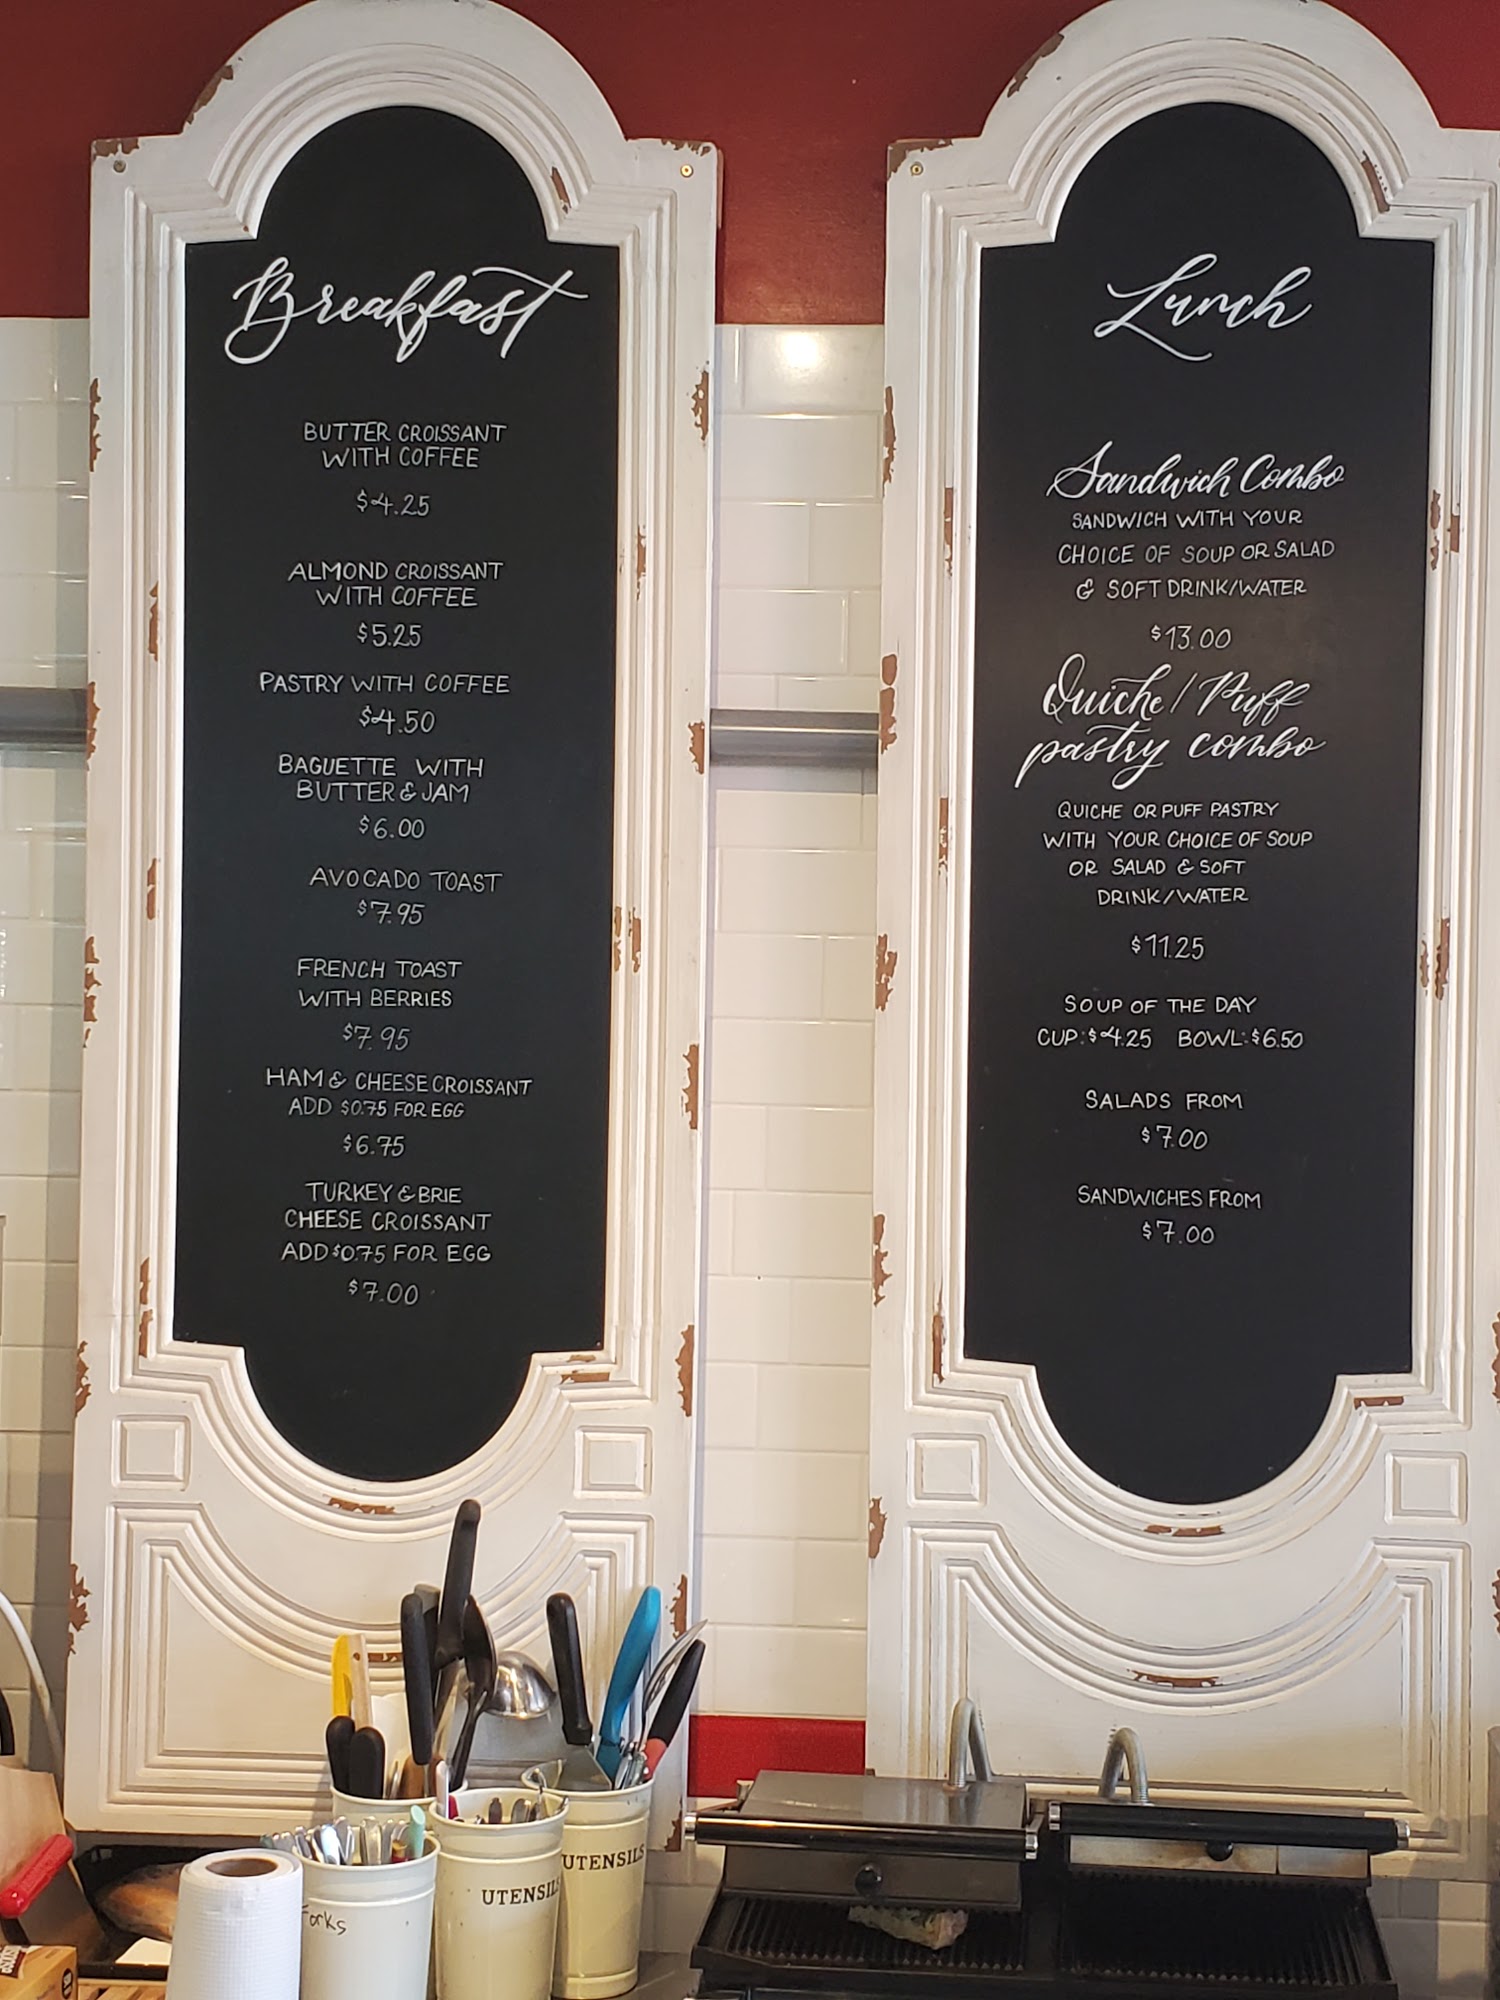 Breakfast
BUTTER CROISSANT
WITH COFFEE
$4.25
ALMOND CROISSANT
WITH COFFEE
$5.25
PASTRY WITH COFFEE
$4.50
BAGUETTE WITH
BUTTER & JAM
$6.00
AVOCADO TOAST
$7.95
FRENCH TOAST
WITH BERRIES
$7.95
HAM & CHEESE CROISSANT
ADD $0.75 FOR EGG
$6.75
TURKEY & BRIE
CHEESE CROISSANT
ADD $0.75 FOR EGG
$7.00
Lunch
Sandwich Combo
SANDWICH WITH YOUR
CHOICE OF SOUP OR SALAD
& SOFT DRINK/WATER
$13.00
Quiche/Puff
pastry combo
QUICHE OR PUFF PASTRY
WITH YOUR CHOICE OF SOUP
OR SALAD & SOFT
DRINK/WATER
$11.25
SOUP OF THE DAY
CUP: $4.25 BOWL: $6.50
SALADS FROM
$7.00
SANDWICHES FROM
$7.00
Forks
UTENSILS
UTENSILS